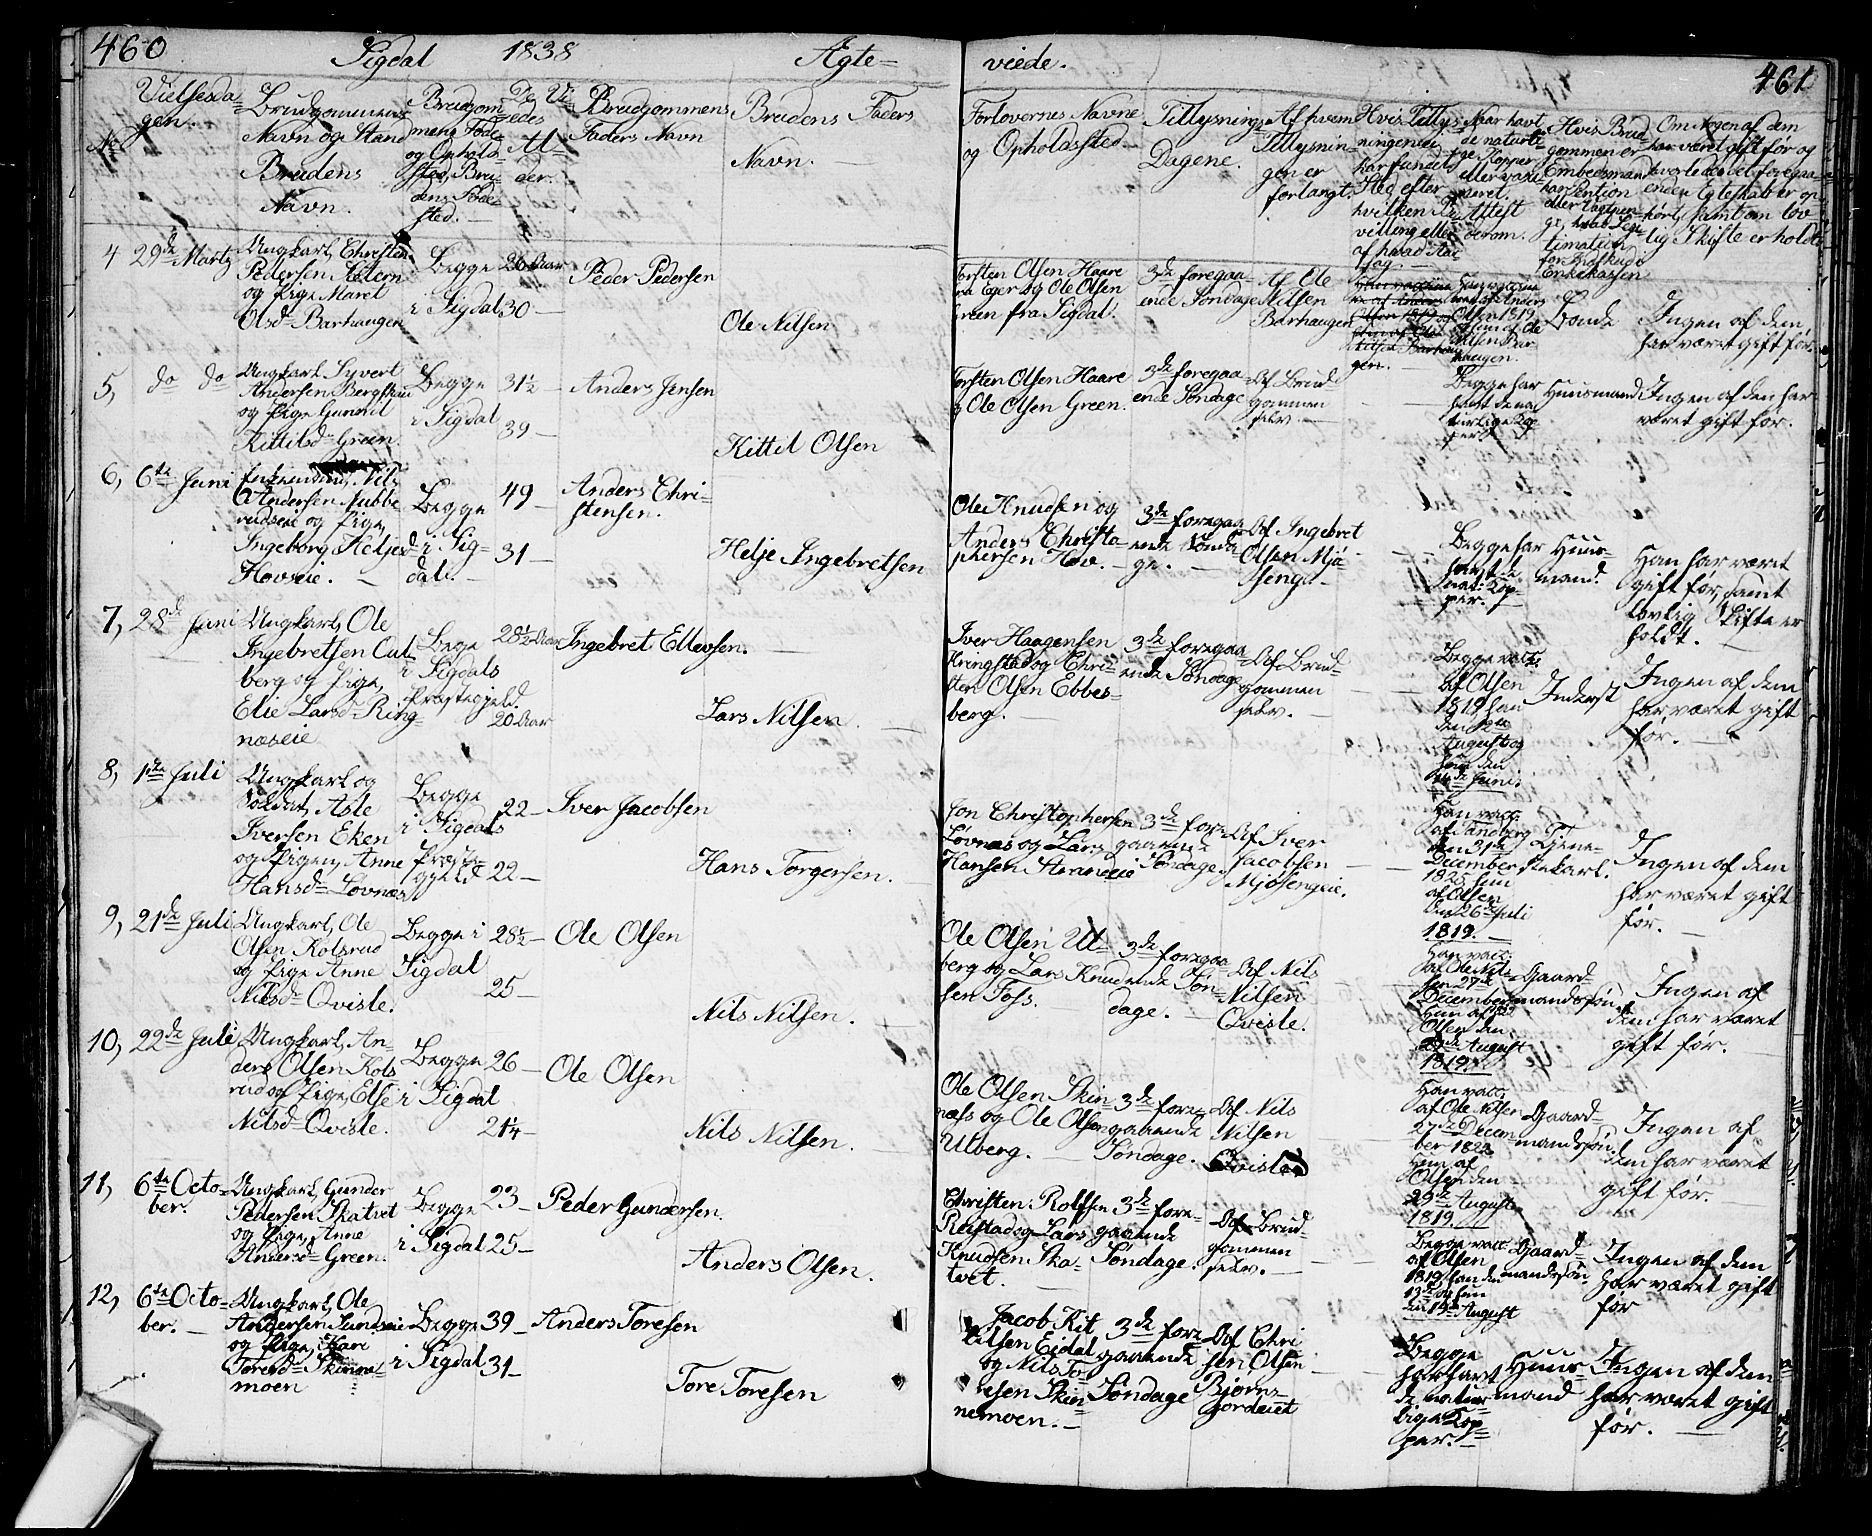 460
Sigdal 1838 Ægte-
viede.
461
No
Vielsesda-
gen.
Brudgommens
Navn og Stand
Brudens
Navn.
Brudgom-
mens Føde
og Opholds-
sted, Bru-
dens Føde-
sted.
De Vi-
edes
Al-
der.
Brudgommens
Faders Navn
Brudens Faders
Navn.
Forlovernes Navne
og Opholdssted
Tillysnings
Dagene.
Af hvem
Tillysnin-
gen er
forlangt.
Hvis Tillys-
ningen ei
har fundet
Sted efter
hvilken Be-
villing eller
af hvad Aar-
sag.
Naar havt
de naturli-
ge Kopper
eller vacci-
neret.
Attest
derom.
Hvis Brud-
gommen er
Embedsmand
har Pention
eller
hvad Legi-
timation
for Indskud i
Enkekassen
Om nogen af dem
har været gift før og
hvorledes det foregaa-
ende Egteskab er op-
hört, samt om lov-
lig Skifte er holdt
4
29de Martz
Ungkarl Christen
Pedersen
og Pige Maret
Olsd Barhaugen
Begge
i Sigdal
26 Aar
30
Peder Pedersen
Ole Nilsen
Torsten Olsen Haare
fra Eger og Ole Olsen
Green fra Sigdal.
3de foregaa-
ende Søndage
Af Ole
Nilsen
Barhaugen
Han vaccine-
ret af Anders
Olsen 1819
Hun af Ole
Nilsen Bar-
haugen.
Bonde
Ingen af dem
har været gift før.
5,
do do
Ungkarl Syvert
Andersen Bergstuen
og Pige Gunnil
Kittilsd Green
Begge
i Sigdal
31½
39
Anders Jensen
Kittil Olsen
Torsten Olsen Haare
og Ole Olsen Green.
3de foregaa-
ende Søndage
Af Brud-
gommen
selv.
Begge har
havt de na-
turlige Kop-
per
Huusmand
Ingen af dem har
været gift før.
6,
6te Juni
Enkemand, Nils
Andersen Nubbe-
rudseie og Pige,
Ingeborg Heljesd
Hovseie.
Begge
i Sig-
dal.
49
31
Anders Chri-
stensen.
Helje Ingebretsen
Ole Knudsen og
Anders Christo-
phersen Hov.
3de foregaa-
ende Sønda-
ge.
Af Ingebret
Olsen Mjø-
seng.
Begge har
havt de
nat: Kop-
per.
Huus-
mand.
Han har været
gift før, samt
lovlig Skifte er
holdt.
7,
28de Juni
Ungkarl, Ole
Ingebretsen Cat-
berg og Pige,
Elie Larsd Ring-
næseie
Begge
i Sigdals
Præstegjeld.
28½ Aar
20 Aar
Ingebret Ellevsen.
Lars Nilsen
Iver Haagensen
Kringstad og Chri-
sten Olsen Ebbes-
berg.
3de foregaa-
ende Søndage
Af Brud-
gommen
selv.
Begge vacc.
af Olsen
1819 han
den 19de
August og
hun den
Juni.
Inderst
Ingen af dem
har været gift
før.
8,
1de Juli
Ungkarl og
Soldat, Asle
Iversen Eken
og Pigen, Anne
Hansd Løvnæs
Begge
i Sigdals
Præste-
gjeld
22
22
Iver Jacobsen
Hans Torgersen.
Jon Christophersen
Løvnæs og Lars
Hansen Strandeie
3de fore-
gaaende
Søndage.
Af Iver
Jacobsen
Mjøsengeie.
Han vacc.
af Tandberg
den 31te
December
1825 hun
af Olsen
den 26de Juli
1819.
Tjene-
stekarl.
Ingen af dem
har været gift
før.
9,
21de Juli
Ungkarl, Ole
Olsen, Kolsrud
og Pige Anne
Nilsd Qvisle.
Begge i
Sigdal
28½
25
Ole Olsen
Nils Nilsen.
Ole Olsen Ul-
berg og Lars Knud-
sen Foss.
3de foregaa-
ende Søn-
dage.
Af Nils
Nilsen
Qvisle.
Han vacc.
af Ole Nil-
sen 27de
December
Hun af
Olsen den
August
1819.
Gaard-
mandssøn.
Ingen af
dem har været
gift før.
10,
22de Juli
Ungkarl, An-
ders Olsen Kols-
rud og Pige, Else
Nilsd Qvisle.
Begge
i Sigdal
26
21¼
Ole Olsen
Nils Nilsen.
Ole Olsen Skin-
næss og Ole Olsen
Ulberg.
3de fore-
gaaende
Søndage.
Af Nils
Nilsen
Qvisle
Han vacc.
af Ole Nilsen
27de Decem-
ber 1822
Hun af
Olsen den
29de August
1819.
Gaard-
mandssøn.
Ingen af
dem har været
gift før.
11,
6te Octo-
ber.
Ungkarl, Gunder
Pedersen Skatvet
og Pige, Anne
Andersd Green.
Begge
i Sigdal
23
25
Peder Gundersen.
Anders Olsen.
Christen Rolfsen
Reistad og Lars
Knudsen Ska-
tvet.
3de fore-
gaaende
Søndage.
Af Brud-
gommen
selv.
Begge vacc.
af Olsen
1819 han den
13de og hun
den 19de August
Gaard-
mandssøn.
Ingen af dem
har været gift
før
12,
6te Octo-
ber.
Ungkarl, Ole
Andersen Lundseie
og Pige, Kari
Toresd Skinne-
moen
Begge
i Sigdal
39
31
Anders Toresen
Tore Toresen
Jacob Kit-
tilsen Eidal
og Nils To-
resen Skin-
nemoen.
3de fore-
gaaende
Søndage
Af Chri-
sten Olsen
Bjørns-
gordeiet
Begge
har havt
de natur-
lige Kop-
per.
Huus-
mand
Ingen af dem
har været gift
før.